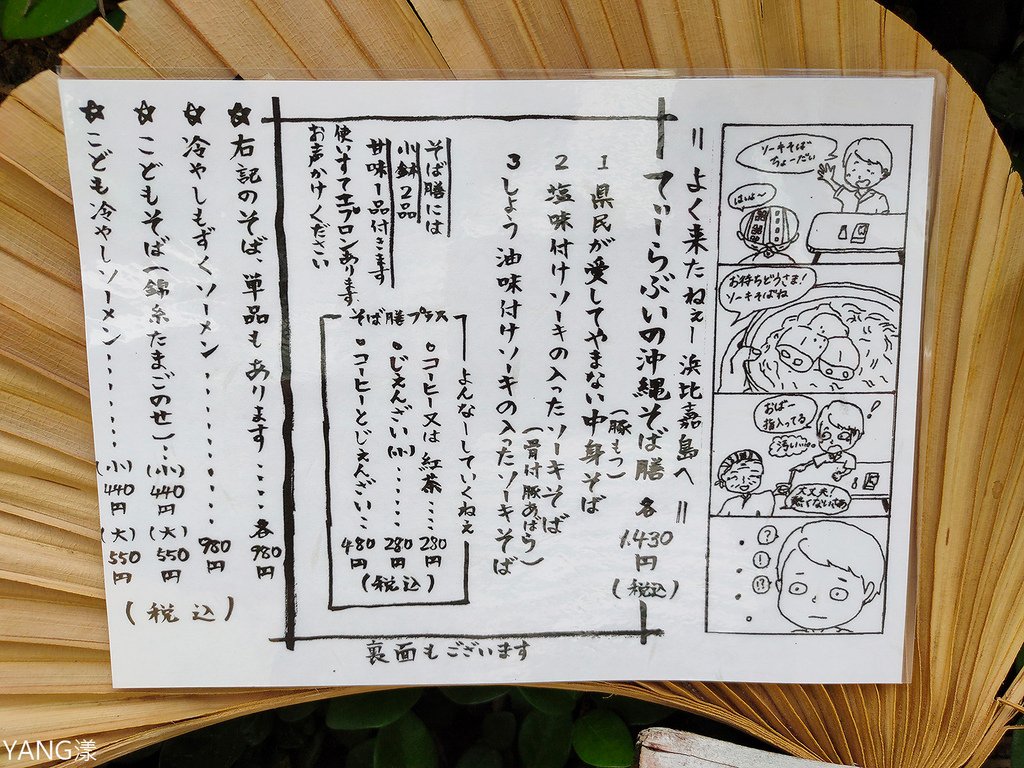 ソーキそば
ちょーだい
はいよ〜
お待ちどうさま!
ソーキそばね
おばー
指入ってる
!
大丈夫!
熱くないさあ
?
!
!?
=よく来たねぇー浜比嘉島へ=
てぃーらぶいの沖縄そば膳 各1,430円(税込)
1 県民が愛してやまない中身そば(豚もつ)
2 塩味付けソーキの入ったソーキそば
3 しょう油味付けソーキの入ったソーキそば(骨付豚あばら)
そば膳には
小鉢2品
甘味1品付きます
使いすてエプロンあります
お声かけください
そば膳プラス
よんなーしていくねぇ
○コーヒー又は紅茶....280円
○じぇんざい(小)......280円
○コーヒーとじぇんざい...480円
(税込)
裏面もございます
☆右記のそば、単品もあります....各980円
☆冷やしもずくソーメン..........980円
☆こどもそば(錦糸たまごのせ)...(小)440円 (大)550円
☆こども冷やしソーメン.........(小)440円 (大)550円
(税込)
YANG漾